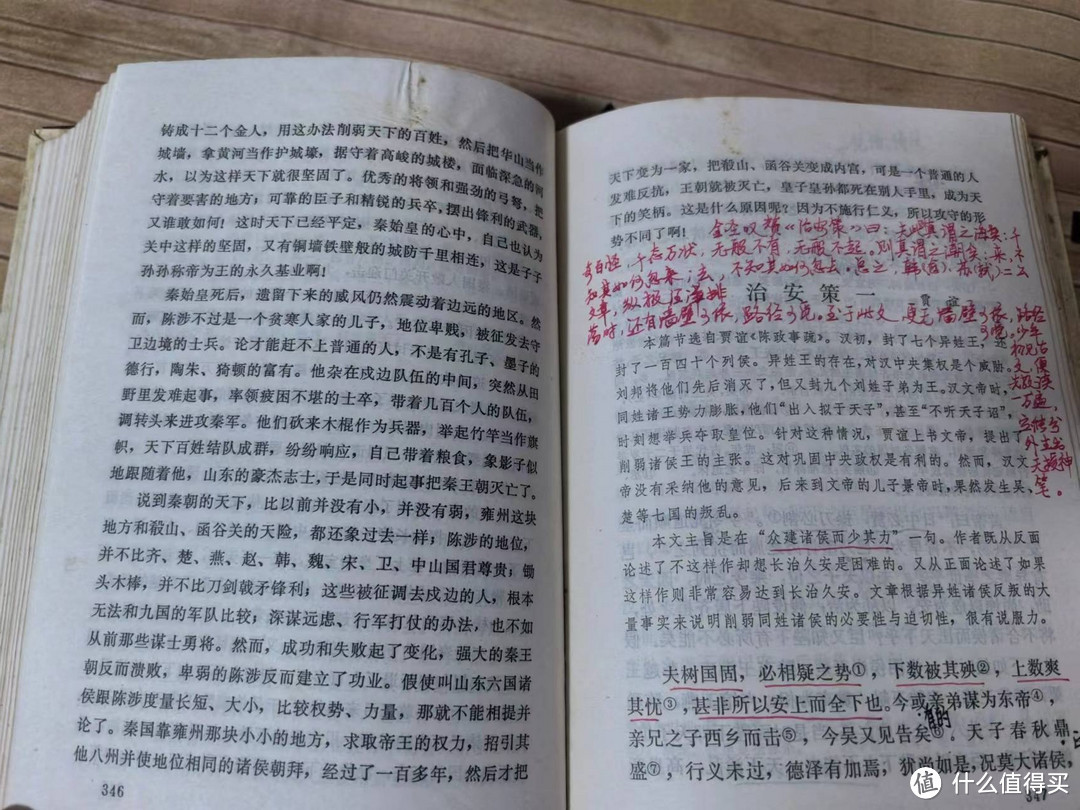 铸成十二个金人，用这办法削弱天下的百姓，然后把华山当作
城墙，拿黄河当作护城壕，据守着高峻的城楼，面临深急的河
水，以为这样天下就很坚固了。优秀的将领和强劲的弓弩，把
守着要害的地方；可靠的臣子和精锐的兵卒，摆出锋利的武器，
又谁敢如何！这时天下已经平定，秦始皇的心中，自己也认为
关中这样的坚固，又有铜墙铁壁般的城防千里相连，这是子子
孙孙称帝为王的永久基业啊！
秦始皇死后，遗留下来的威风仍然震动着边远的地区。然
而，陈涉不过是一个贫寒人家的儿子，地位卑贱，被征发去守
卫边境的士兵。论才能赶不上普通的人，不是有孔子、墨子的
德行，陶朱、猗顿的富有。他杂在戍边队伍的中间，突然从田
野里发难起事，率领疲困不堪的士卒，带着几百个人的队伍，
调转头来进攻秦军。他们砍来木棍作为兵器，举起竹竿当作旗
帜，天下百姓结队成群，纷纷响应，自己带着粮食，象影子似
地跟随着他，山东的豪杰志士，于是同时起事把秦王朝灭亡了。
说到秦朝的天下，比以前并没有小，并没有弱，雍州这块
地方和殽山、函谷关的天险，都还象过去一样；陈涉的地位，
并不比齐、楚、燕、赵、韩、魏、宋、卫、中山国君尊贵；锄
头木棒，并不比刀剑戟矛锋利；这些被征调去戍边的人，根本
无法和九国的军队比较；深谋远虑、行军打仗的办法，也不如
从前那些谋士勇将。然而，成功和失败起了变化，强大的秦王
朝反而溃败，卑弱的陈涉反而建立了功业。假使叫山东六国诸
侯跟陈涉度量长短、大小，比较权势、力量，那就不能相提并
论了。秦国靠雍州那块小小的地方，求取帝王的权力，招引其
他八州并使地位相同的诸侯朝拜，经过了一百多年，然后才把
346
天下变为一家，把殽山、函谷关变成内宫，可是一个普通的人
发难反抗，王朝就被灭亡，皇子皇孙都死在别人手里，成为天
下的笑柄。这是什么原因呢？因为不施行仁义，所以攻守的形
势不同了啊！
金圣叹赞《治安策》曰：
千态万状，无般不有，无般不起。则真谓之潮矣：来，不
知其如何忽来；去，不知其如何忽去。总之，韩(愈)、苏(轼)二公
文章，纵极
还有墙壁可依，路径可觅。至于此文，更无墙壁可依，路径
可觅。少年
初见古
文，便
一万遍，
治安策一
贾谊
本篇节选自贾谊《陈政事疏》。汉初，封了七个异姓王，还
封了一百四十个列侯。异姓王的存在，对汉中央集权是个威胁。
刘邦将他们先后消灭了，但又封九个刘姓子弟为王。汉文帝时，
同姓诸王势力膨胀，他们“出入拟于天子”，甚至“不听天子诏”，
时刻想举兵夺取皇位。针对这种情况，贾谊上书文帝，提出了
削弱诸侯王的主张。这对巩固中央政权是有利的。然而，汉文
帝没有采纳他的意见，后来到文帝的儿子景帝时，果然发生吴、
楚等七国的叛乱。
本文主旨是在“众建诸侯而少其力”一句。作者既从反面
论述了不这样作却想长治久安是困难的。又从正面论述了如果
这样作则非常容易达到长治久安。文章根据异姓诸侯反叛的大
量事实来说明削弱同姓诸侯的必要性与迫切性，很有说服力。
夫树国固，必相疑之势①，下数被其殃②，上数爽
其忧③，甚非所以安上而全下也。今或亲弟谋为东帝④，
有的
亲兄之子西乡而击⑤，今吴又见告矣⑥。天子春秋鼎
盛⑦，行义未过，德泽有加焉，犹尚如是，况莫大诸侯，
347
值 什么值得买